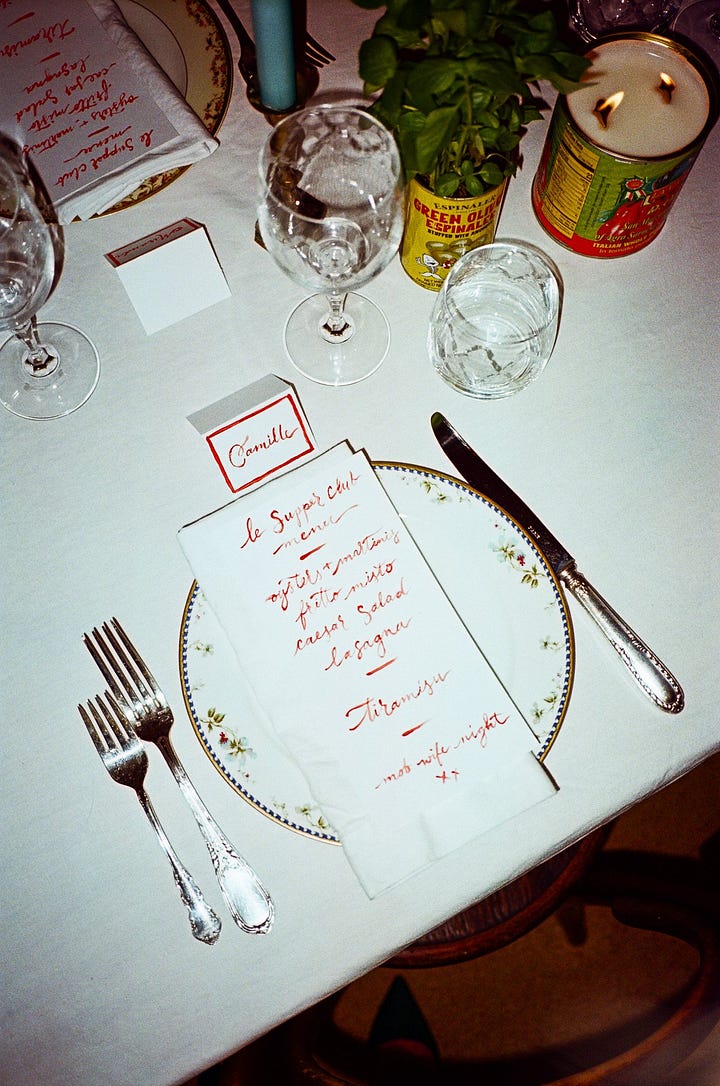 tiramisu
lasagna
caesar salad
fritto misto
oysters + martinis
menu
le Supper club
ESPINALER
GREEN OLIVES
ESPINALER
STUFFED WITH
San
ITALIAN WHOLE
Camille
le Supper club
menu
oysters + martinis
fritto misto
caesar Salad
lasagna
tiramisu
mob wife night
xx